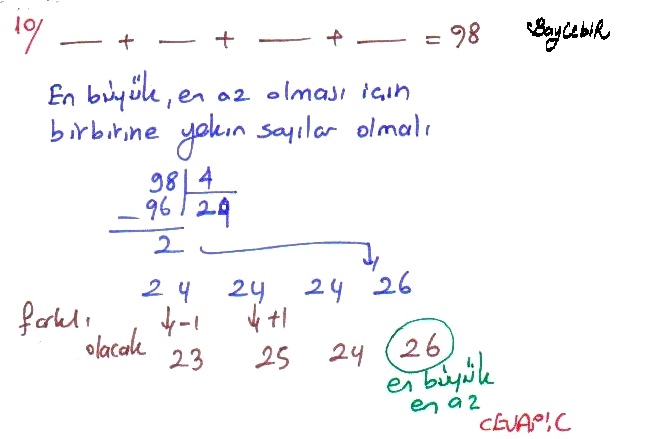 10/ __ + __ + __ + __ = 98 SayCebiR
En büyük, en az olması için
birbirine yakın sayılar olmalı
98 | 4
- 96 24
2
24 24 24 26
farklı ↓-1 ↓+1
olacak 23 25 24 26
en büyük
en az
CEVAP: C